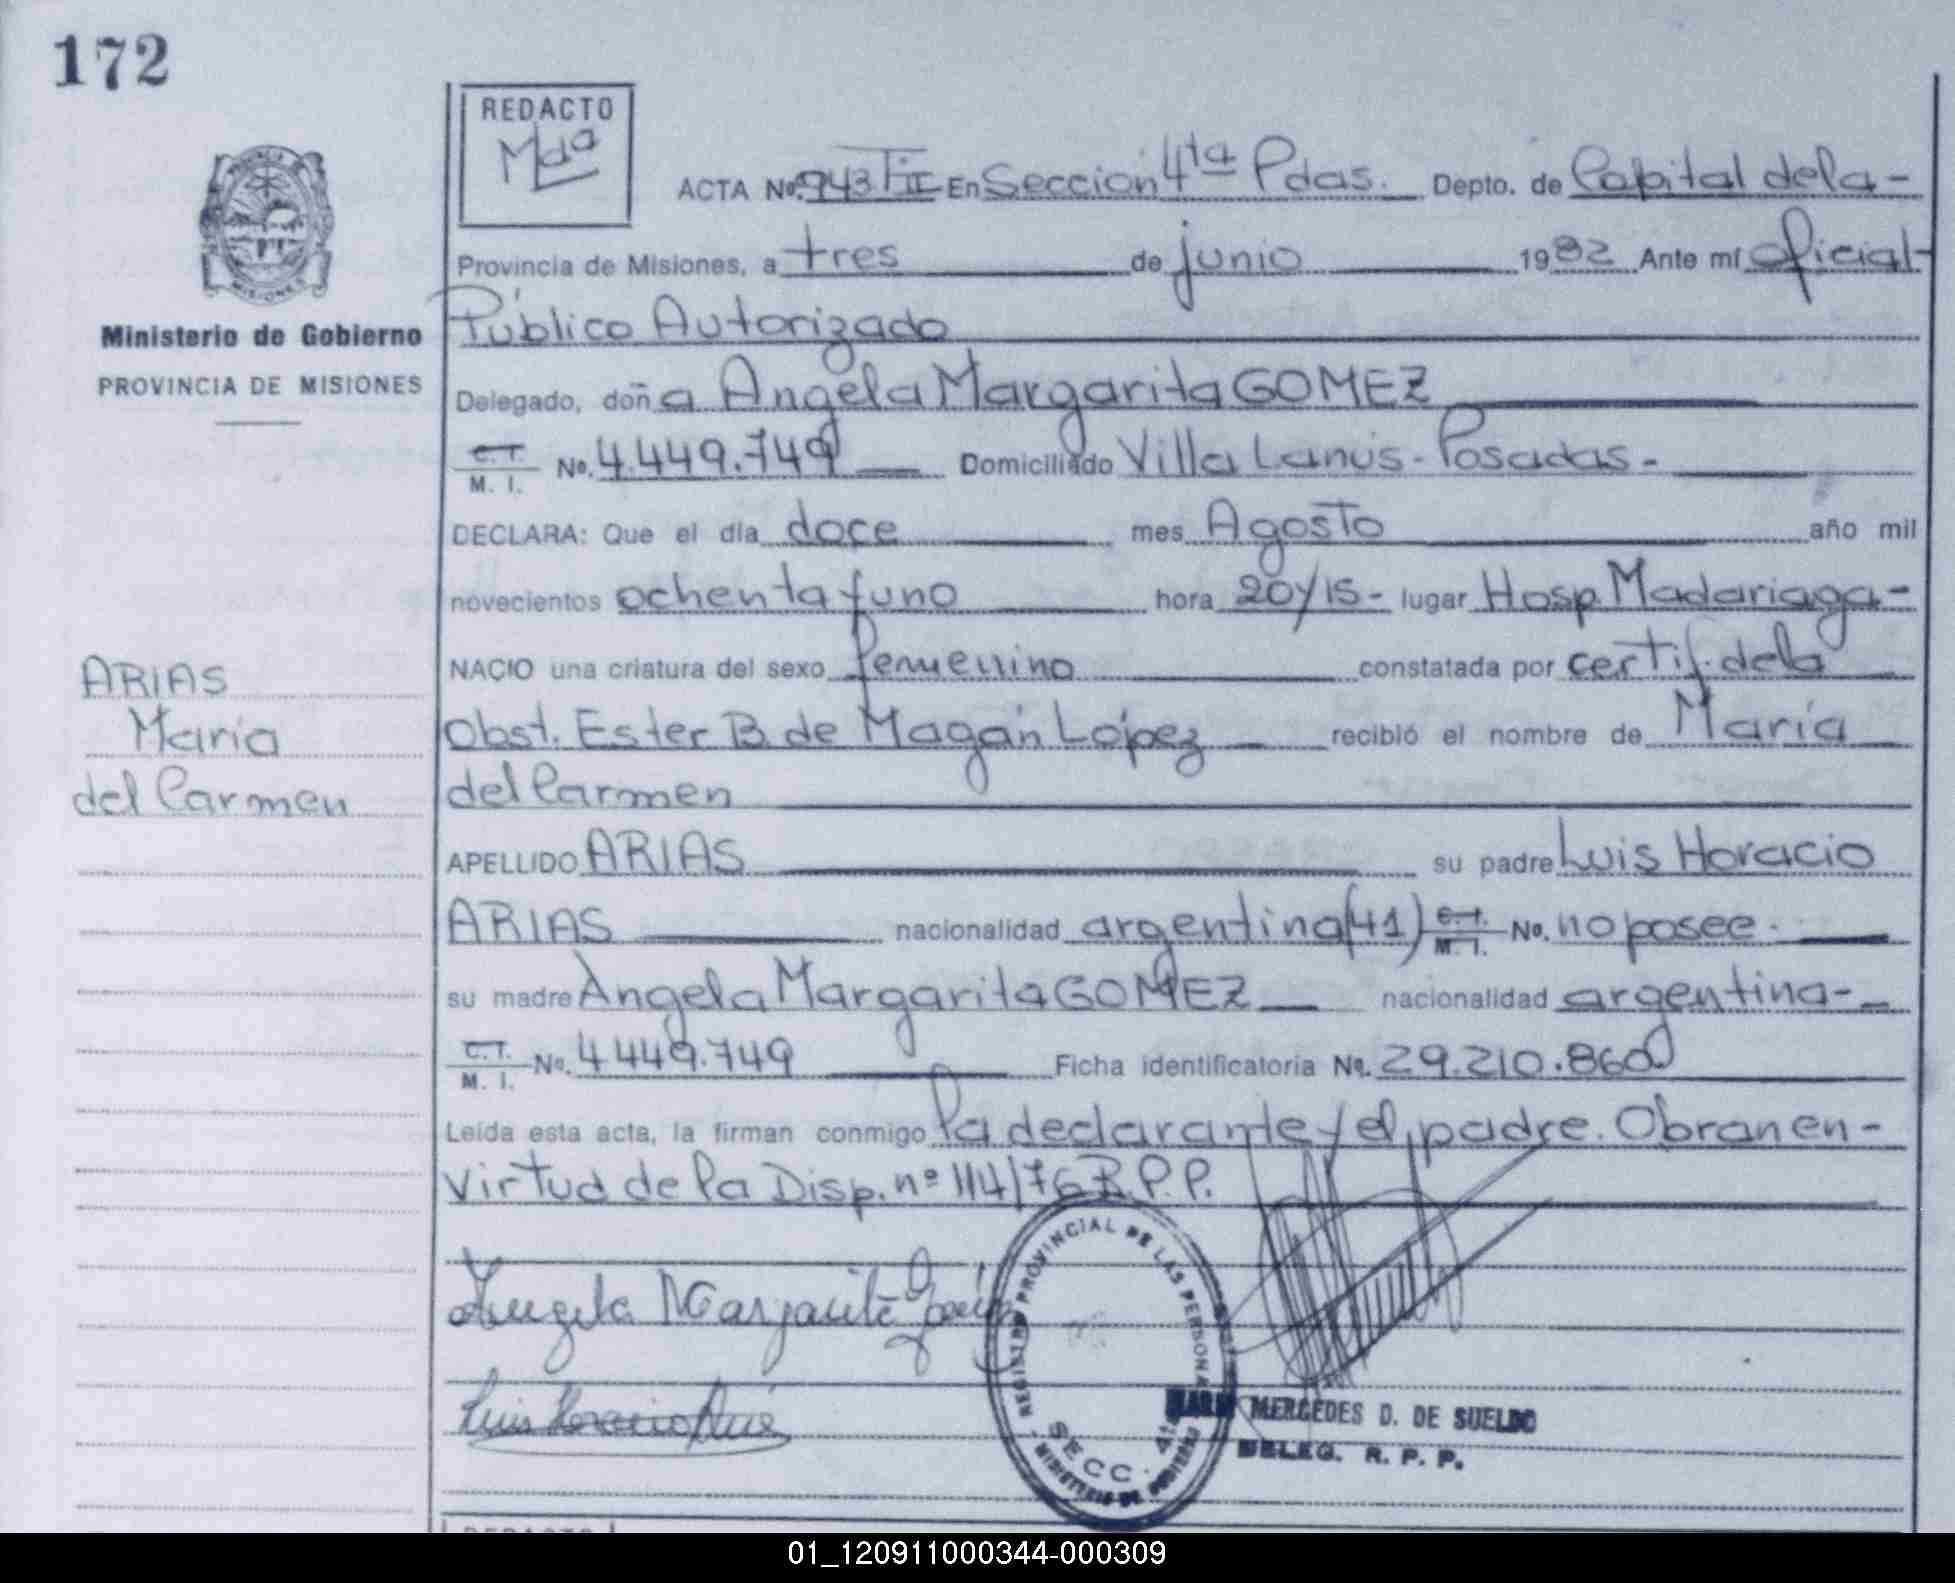 172
REDACTO
Mda
ACTA No. 943 T II En Sección 4ta Pdas. Depto. de Capital de la-
Provincia de Misiones, a tres de junio 1982 Ante mí Oficial-
Público Autorizado
Ministerio de Gobierno
PROVINCIA DE MISIONES
Delegado, doña Angela Margarita GOMEZ
C.I. M. I. No. 4.449.749 Domiciliado Villa Lanús - Posadas -
DECLARA: Que el día doce mes Agosto año mil
novecientos ochenta y uno hora 20y15- lugar Hosp. Madariaga-
NACIO una criatura del sexo femenino constatada por certif. de la
Obst. Ester B. de Magán López recibió el nombre de María
del Carmen
ARIAS
María
del Carmen
APELLIDO ARIAS su padre Luis Horacio
ARIAS nacionalidad argentina (41) C.I. M. I. No. no posee.
su madre Angela Margarita GOMEZ nacionalidad argentina-
C.I. M. I. No. 4449.749 Ficha identificatoria No. 29.210.860
Leída esta acta, la firman conmigo la declarante y el padre. Obran en-
Virtud de la Disp. nº 114/76 R.P.P.
Angela Margarita
Luis Horacio Arias
REGISTRO PROVINCIAL DE LAS PERSONAS
SECC. 4ta
MINISTERIO DE GOBIERNO
MERCEDES D. DE SUELDO
DELEG. R. P. P.
REDACTO
01_120911000344-000309